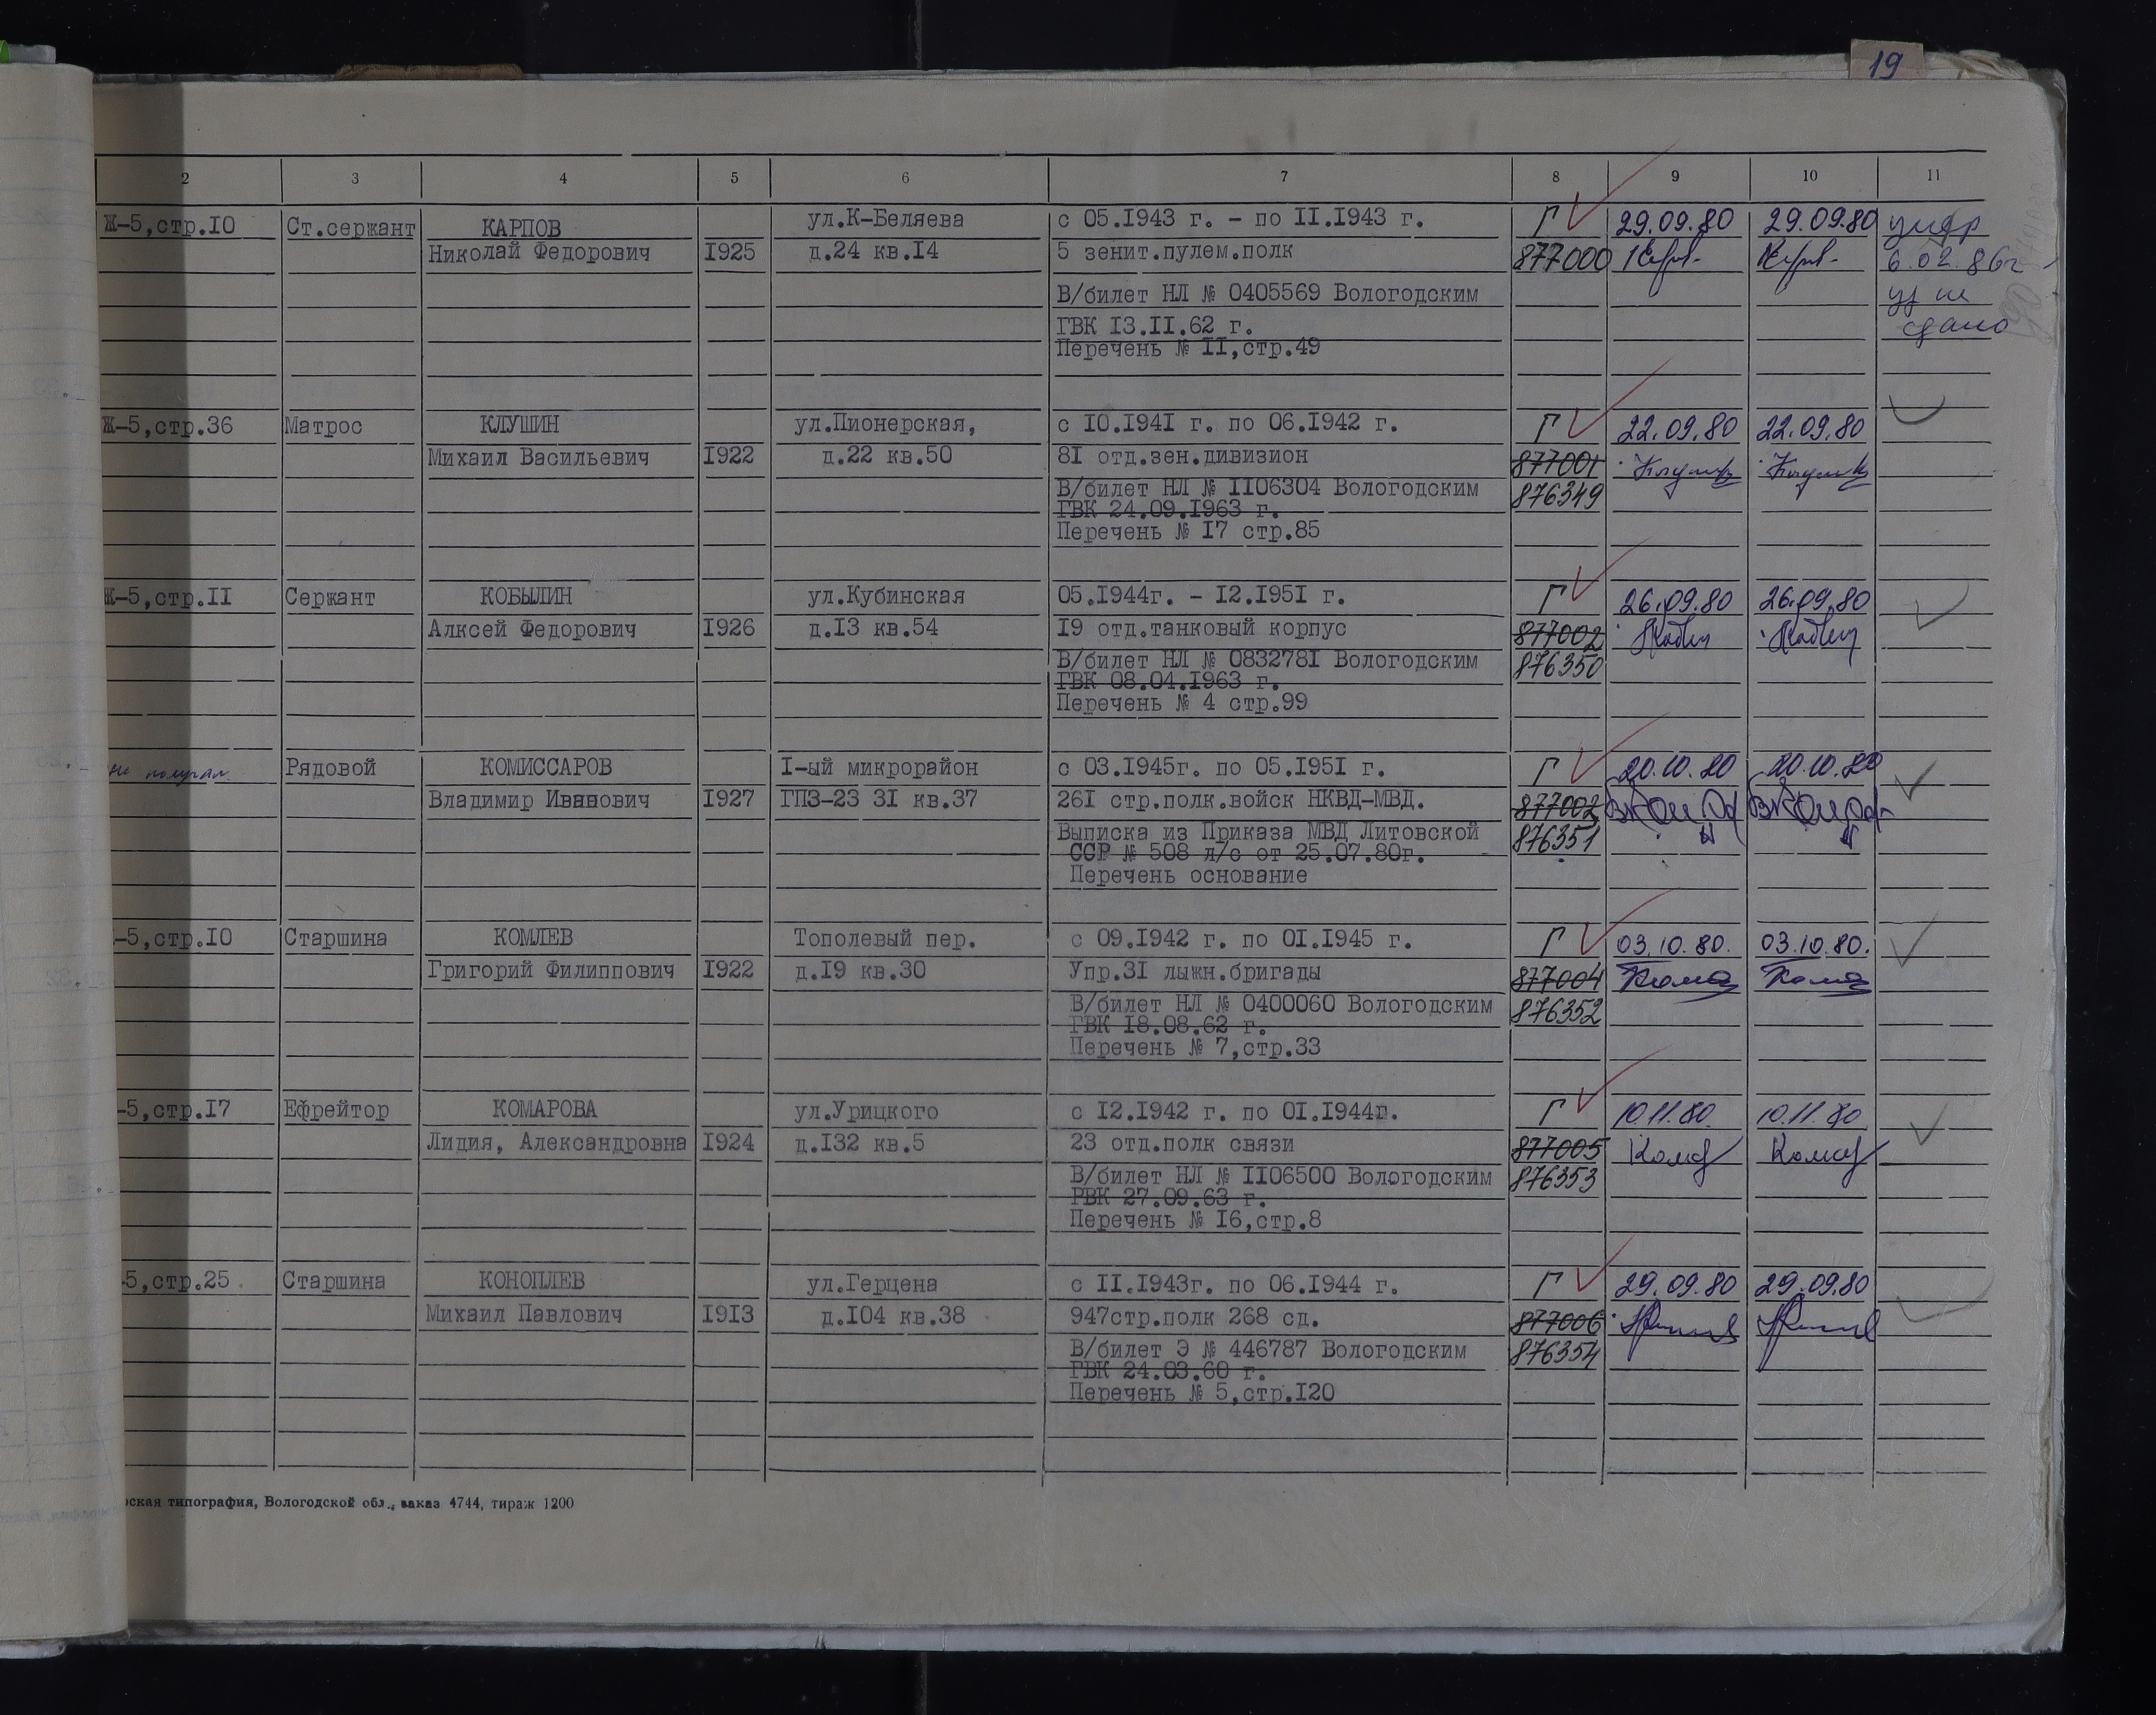 19
2 3 4 5 6 7 8 9 10 11
Ж-5,стр.I0 Ст.сержант КАРПОВ ул.К-Беляева с 05.I943 г. - по II.I943 г. Г 29.09.80 29.09.80 умер
Николай Федорович I925 д.24 кв.I4 5 зенит.пулем.полк 877000 6.02.86г
В/билет НЛ № 0405569 Вологодским уд не
ГВК I3.II.62 г. сдано
Перечень № II,стр.49
Ж-5,стр.36 Матрос КЛУШИН ул.Пионерская, с I0.I94I г. по 06.I942 г. Г 22.09.80 22.09.80
Михаил Васильевич I922 д.22 кв.50 8I отд.зен.дивизион 877001
В/билет НЛ № II06304 Вологодским 876349
ГВК 24.09.I963 г.
Перечень № I7 стр.85
Ж-5,стр.II Сержант КОБЫЛИН ул.Кубинская 05.I944г. - I2.I95I г. Г 26.09.80 26.09.80
Алксей Федорович I926 д.I3 кв.54 I9 отд.танковый корпус 877002
В/билет НЛ № 083278I Вологодским 876350
ГВК 08.04.I963 г.
Перечень № 4 стр.99
не получал Рядовой КОМИССАРОВ I-ый микрорайон с 03.I945г. по 05.I95I г. Г 20.10.80 20.10.80
Владимир Иванович I927 ГПЗ-23 3I кв.37 26I стр.полк.войск НКВД-МВД. 877002
Выписка из Приказа МВД Литовской 876351
ССР № 508 л/с от 25.07.80г.
Перечень основание
-5,стр.I0 Старшина КОМЛЕВ Тополевый пер. с 09.I942 г. по 0I.I945 г. Г 03.10.80. 03.10.80.
Григорий Филиппович I922 д.I9 кв.30 Упр.3I лыжн.бригады 877004
В/билет НЛ № 0400060 Вологодским 876352
ГВК I8.08.62 г.
Перечень № 7,стр.33
-5,стр.I7 Ефрейтор КОМАРОВА ул.Урицкого с I2.I942 г. по 0I.I944г. Г 10.11.80. 10.11.80
Лидия, Александровна I924 д.I32 кв.5 23 отд.полк связи 877005
В/билет НЛ № II06500 Вологодским 876353
РВК 27.09.63 г.
Перечень № I6,стр.8
-5,стр.25 Старшина КОНОПЛЕВ ул.Герцена с II.I943г. по 06.I944 г. Г 29.09.80 29.09.80
Михаил Павлович I9I3 д.I04 кв.38 947стр.полк 268 сд. 877006
В/билет Э № 446787 Вологодским 876354
ГВК 24.03.60 г.
Перечень № 5,стр.I20
рская типография, Вологодской обл., заказ 4744, тираж 1200